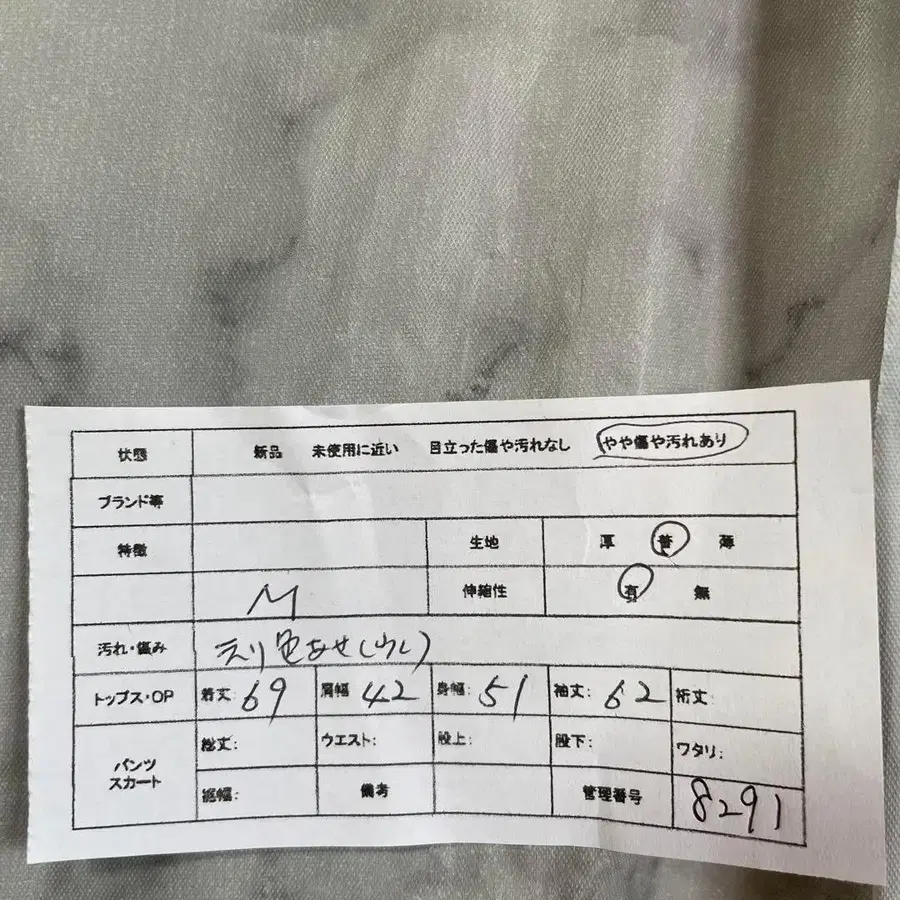 状態 新品 未使用に近い 目立った傷や汚れなし やや傷や汚れあり
ブランド等
特徴 生地 厚 普 薄
M 伸縮性 有 無
汚れ・傷み えり色あせ(少し)
トップス・OP 着丈: 69 肩幅: 42 身幅: 51 袖丈: 62 裄丈:
パンツ スカート 総丈: ウエスト: 股上: 股下: ワタリ:
裾幅: 備考 管理番号 8291